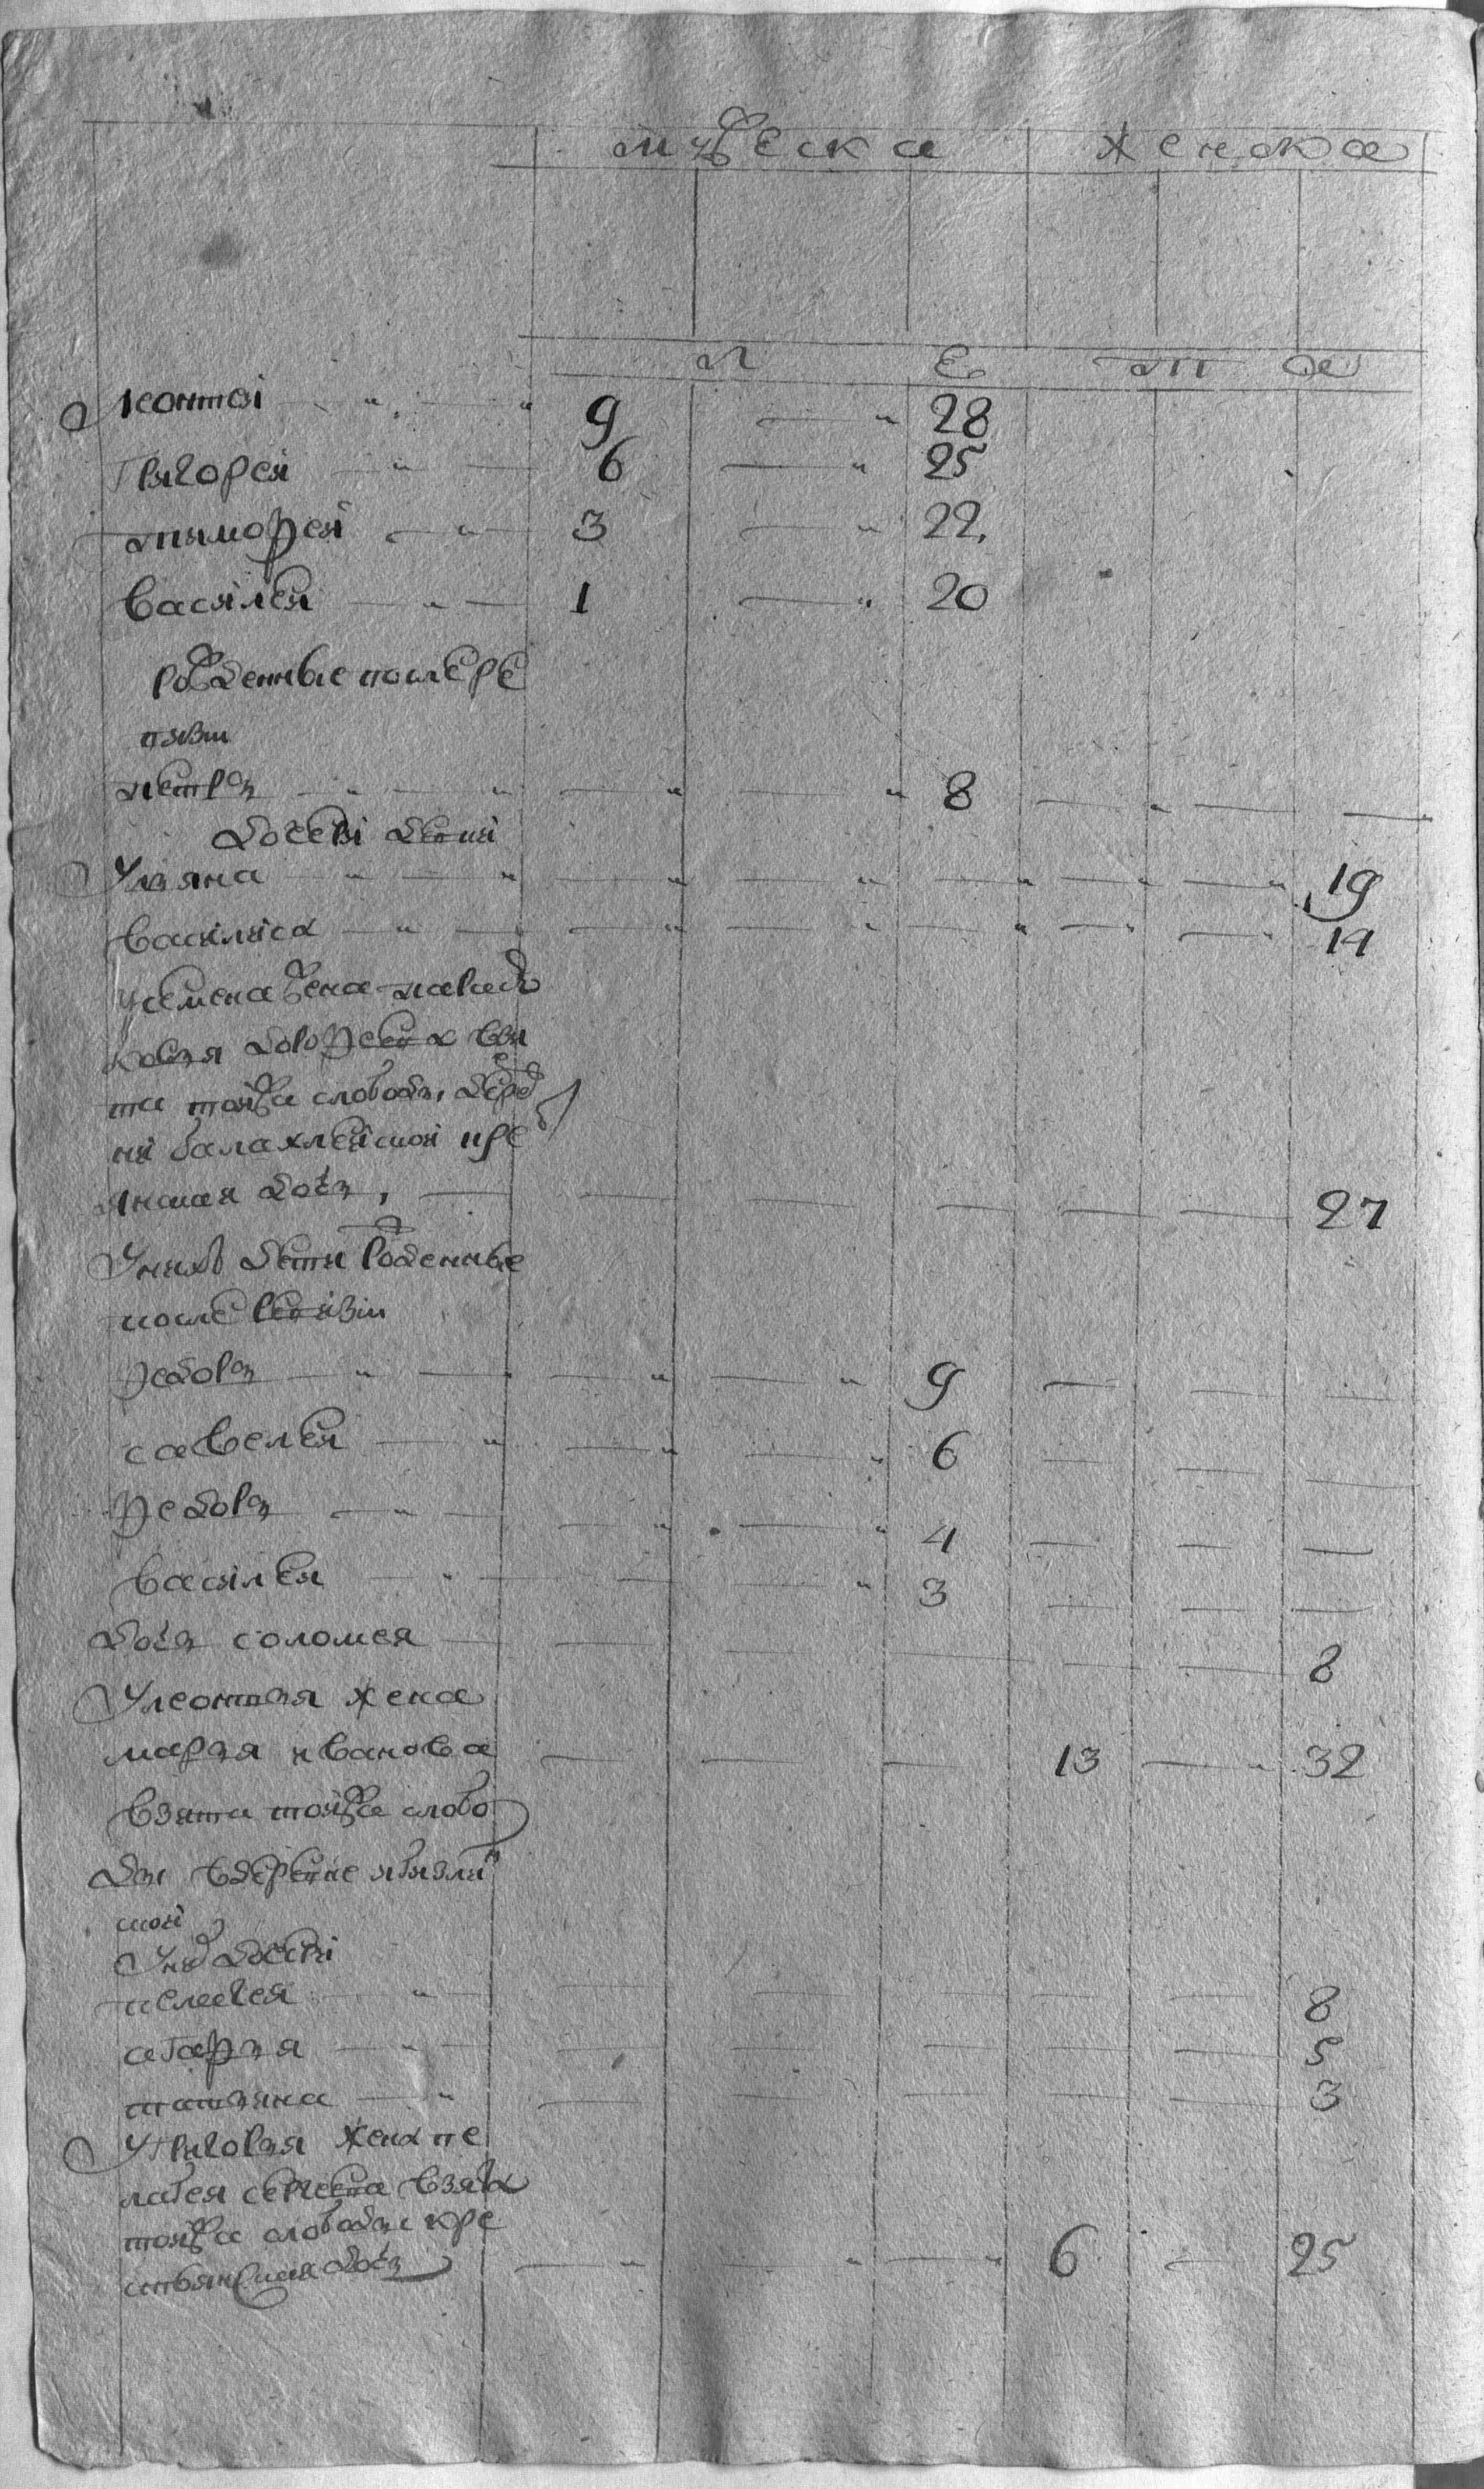 мужеска женска
п е т а
леонтеі 9 28
григореи 6 25
тимофеи 3 22
василеи 1 20
рожденные после ре
визи
петръ 8
дочери девки
Уляна 19
василиса 14
Усемена жена параск
ковя дорофеева взя
та тояже слободы дерев
ни балахлеискои кре
янская дочь 27
Унихъ дети рожденные
после ревизи
федоръ 9
савелеи 6
федоръ 4
василеи 3
дочь соломея 8
Улеонтья жена
марья иванова 13 32
взята тояже слобо
ды вдеревне
скои
Унихъ дочери
пелагея 8
агафья 5
татьяна 3
Угригорья жена пе
лагея сергеева взята
тояже слободы кре
стьянская дочь 6 25